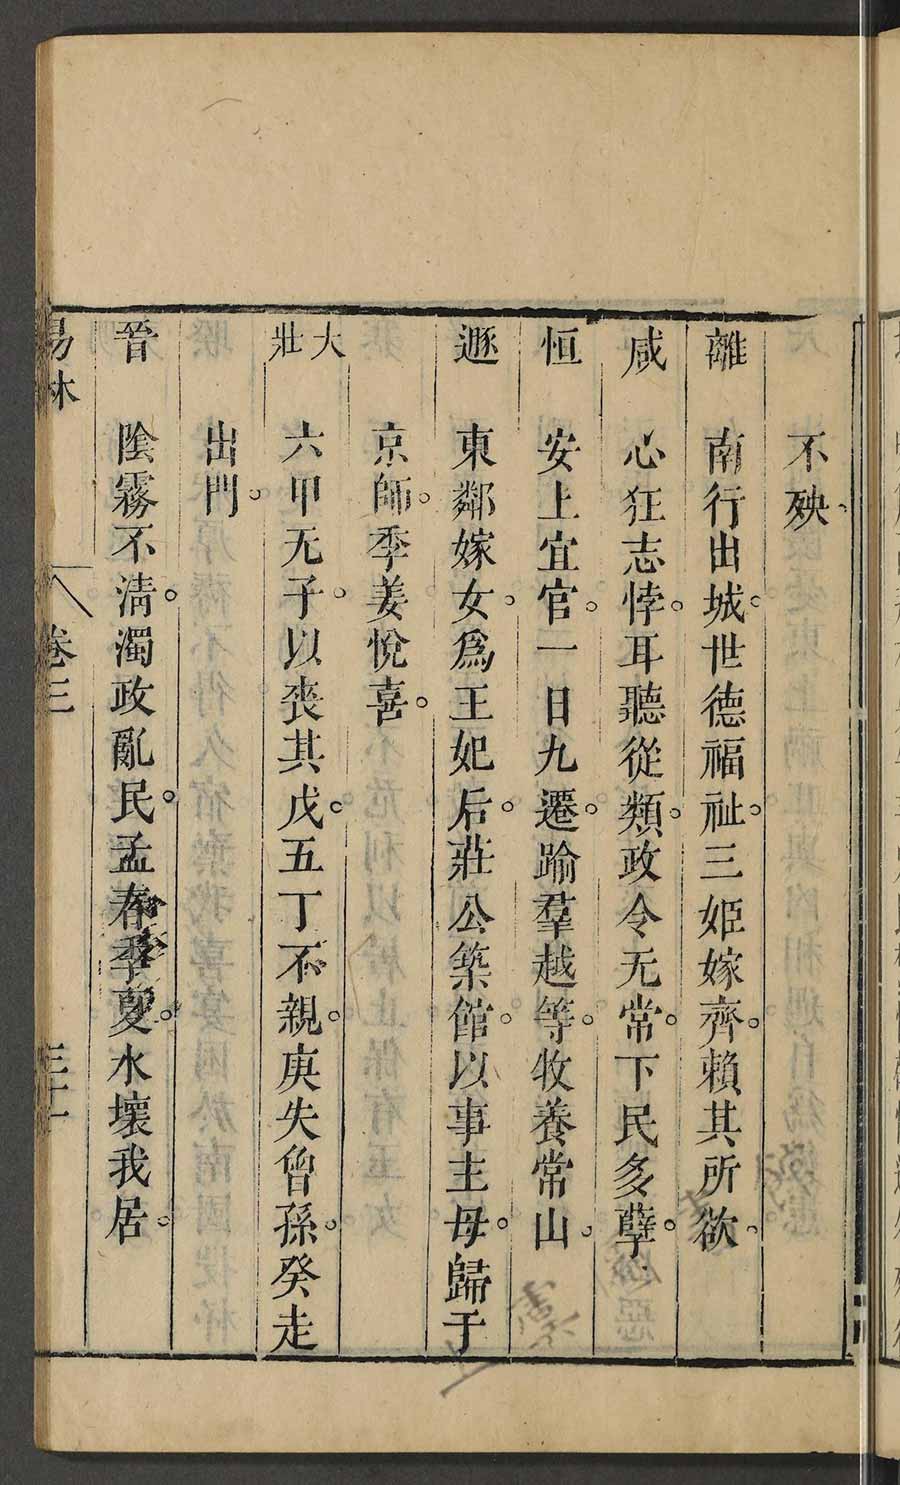 不殃
離 南行出城。世德福祉。三姬嫁齊。賴其所欲。
咸 心狂志悖。耳聽從類。政令无常。下民多孽。
恒 安上宜官。一日九遷。踰羣越等。牧養常山。
遯 東鄰嫁女。爲王妃后。莊公築館。以事主母。歸于
京師。季姜悅喜。
大壯 六甲无子。以喪其戊。五丁不親。庚失曾孫。癸走
出門。
晉 陰霧不淸。濁政亂民。孟春季夏。水壞我居。
易林 卷三